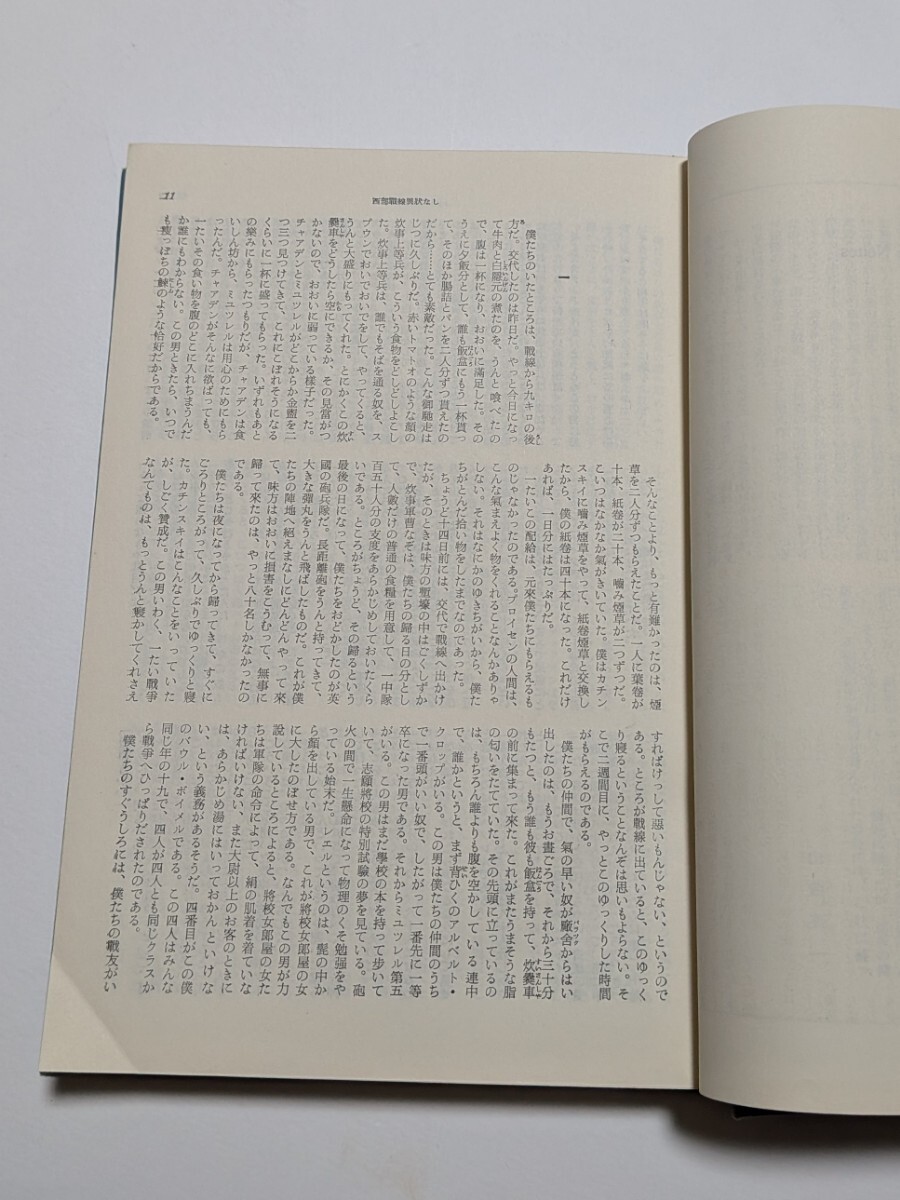 11
西部戰線異狀なし
一
僕たちのいたところは、戰線から九キロの後
方だ。交代したのは昨日だ。やっと今日になっ
て牛肉と白隱元の煮たのを、うんと喰べたの
で、腹は一杯になり、おおいに滿足した。その
うえに夕飯分として、誰も飯盒にもう一杯貰っ
て、そのほか腸詰とパンを二人分ずつ貰えたの
だから……とても素敵だった。こんな御馳走は
じつに久しぶりだ。赤いトマトオのような顏の
炊事上等兵が、こういう食物をどしどしよこし
た。炊事上等兵は、誰でもそばを通る奴を、ス
プウンでおいでおいでをして、やってくると、
うんと大盛りにもってくれた。とにかくこの炊
爨車をどうしたら空にできるか、その見當がつ
かないので、おおいに弱っている樣子だった。
チャアデンとミュツレルがどこからか金盥を二
つ三つ見つけてきて、これにこぼれそうになる
くらいに一杯に盛ってもらった。いずれもあと
の樂みにもらったつもりだが、チャアデンは食
いしん坊から、ミュツレルは用心のためにもら
ったんだ。チャアデンがそんなに欲ばっても、
一たいその食い物を腹のどこに入れちまうんだ
か誰にもわからない。この男ときたら、いつで
も瘦っぽちの鰊のような恰好だからである。
そんなことより、もっと有難かったのは、煙
草を二人分ずつもらえたことだ。一人に葉卷が
十本、紙卷が二十本、嚙み煙草が二つずつだ。
こいつはなかなか氣がきいていた。僕はカチン
スキイに嚙み煙草をやって、紙卷煙草と交換し
たから、僕の紙卷は四十本になった。これだけ
あれば、一日分にはたっぷりだ。
一たいこの配給は、元來僕たちにもらえるも
のじゃなかったのである。プロイセンの人間は、
こんな氣まえよく物をくれることなんかありゃ
しない。それはなにかのゆきちがいから、僕た
ちがとんだ拾い物をしたまでなのであった。
ちょうど十四日前には、交代で戰線へ出かけ
たが、そのときは味方の塹壕の中はごくしずか
で、炊事軍曹なぞは、僕たちの歸る日の分とし
て、人數だけの普通の食糧を用意して、一中隊
百五十人分の支度をあらかじめしておいたくら
いである。ところがちょうど、その歸るという
最後の日になって、僕たちをおどかしたのが英
國の砲兵隊だ。長距離砲をうんと持ってきて、
大きな彈丸をうんと飛ばしたものだ。これが僕
たちの陣地へ絕えまなしにどんどんやって來
て、味方はおおいに損害をこうむって、無事に
歸って來たのは、やっと八十名しかなかったの
である。
僕たちは夜になってから歸ってきて、すぐに
ごろりところがって、久しぶりでゆっくりと寢
た。カチンスキイはこんなことをいっていた
が、しごく贊成だ。この男いわく、一たい戰爭
なんてものは、もっとうんと寢かしてくれさえ
すればけっして惡いもんじゃない、というので
ある。ところが戰線に出ていると、このゆっく
り寢るということなんぞは思いもよらない。そ
こで二週間目に、やっとこのゆっくりした時間
がもらえるのである。
僕たちの仲間で、氣の早い奴が廠舍からはい
出したのは、もうお晝ごろで、それから三十分
もたつと、もう誰も彼も飯盒を持って、炊爨車
の前に集まって來た。これがまたうまそうな脂
の匂いをたてていた。その先頭に立っているの
は、もちろん誰よりも腹を空かしている連中
で、誰かというと、まず背ひくのアルベルト・
クロップがいる。この男は僕たちの仲間のうち
で一番頭がいい奴で、したがって一番先に一等
卒になった男である。それからミュツレル第五
がいる。この男はまだ學校の本を持って歩いて
いて、志願將校の特別試驗の夢を見ている。砲
火の間で一生懸命になって物理のくそ勉强をや
っている始末だ。レエルというのは、髭の中か
ら顏を出している男で、これが將校女郎屋の女
に大したのぼせ方である。なんでもこの男が力
說しているところによると、將校女郎屋の女た
ちは軍隊の命令によって、絹の肌着を着ていな
ければいけない、また大尉以上のお客のときに
は、あらかじめ湯にはいっておかんといけな
い、という義務があるそうだ。四番目がこの僕
のパウル・ボイメルである。この四人はみんな
同じ年の十九で、四人が四人とも同じクラスか
ら戰爭へひっぱりだされたのである。
僕たちのすぐうしろには、僕たちの戰友がい